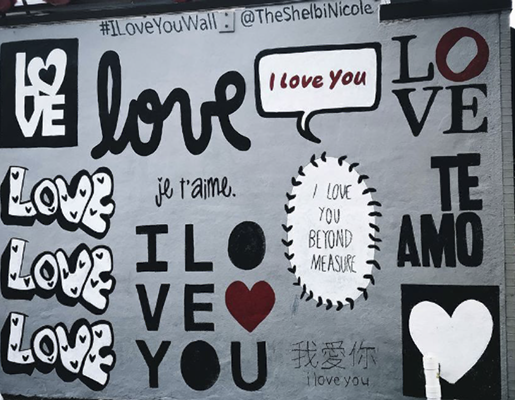 #ILoveYouWall : @TheShelbiNicole
LOVE
love
I love you
LOVE
LOVE
LOVE
LOVE
je t'aime.
I LO
VE
YOU
I LOVE
YOU
BEYOND
MEASURE
TE
AMO
我愛你
i love you